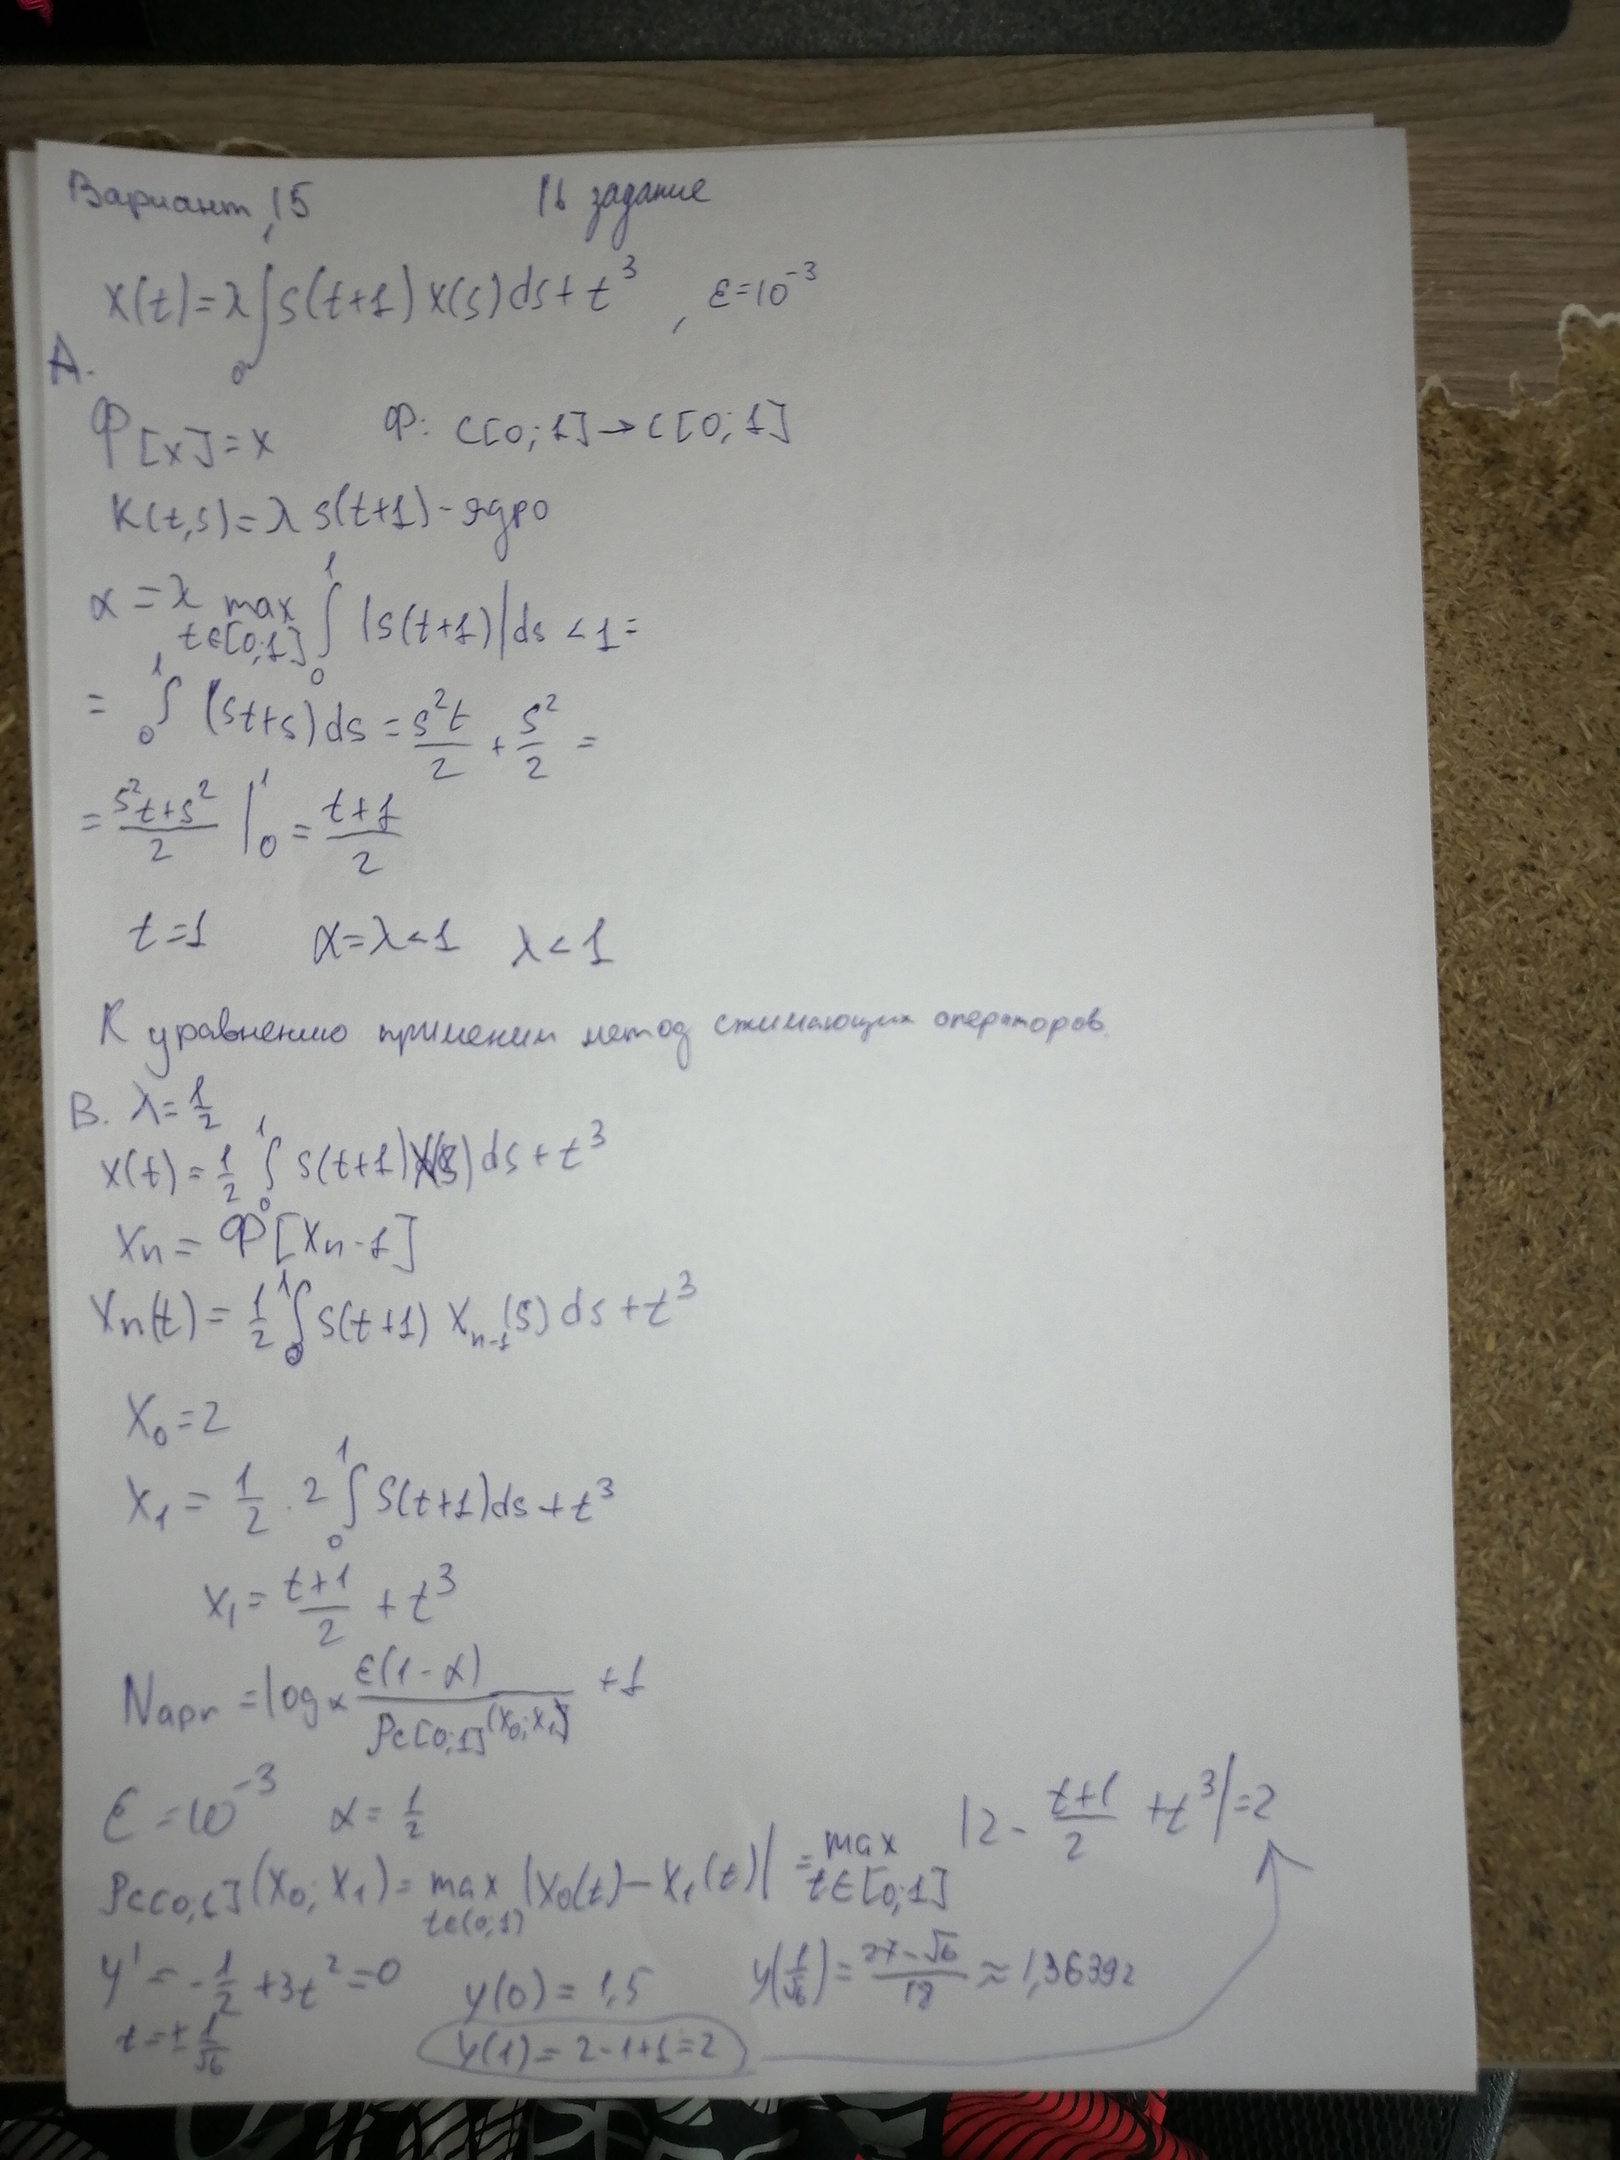 Вариант 15 16 задание
x(t)=λ∫₀¹ s(t+1) x(s) ds + t³ , ε=10⁻³
A.
Ф[x]=x Ф: C[0;1]→C[0;1]
K(t,s)=λ s(t+1) - ядро
α = λ max t∈[0;1] ∫₀¹ |s(t+1)| ds < 1 =
= ∫₀¹ (st+s) ds = s²t/2 + s²/2 =
= (s²t+s²)/2 |₀¹ = (t+1)/2
t=1 α=λ<1 λ<1
К уравнению применим метод сжимающих операторов.
B. λ=1/2
x(t)= 1/2 ∫₀¹ s(t+1)x(s) ds + t³
Xn = Ф[Xn-1]
Xn(t) = 1/2 ∫₀¹ s(t+1) Xn-1(s) ds + t³
X₀=2
X₁ = 1/2 · 2 ∫₀¹ s(t+1) ds + t³
X₁ = (t+1)/2 + t³
Napr = logα ε(1-α)/ρc[0;1](x₀;x₁) +1
ε=10⁻³ α=1/2
ρc[0,1](x₀; x₁)= max t∈(0;1) |x₀(t)-x₁(t)| = max t∈[0;1] |2 - (t+1)/2 + t³|=2
y' = -1/2 + 3t² = 0 y(0) = 1,5 y(1/√6) = (27-√6)/18 ≈ 1,36392
t=± 1/√6 y(1)= 2-1+1=2